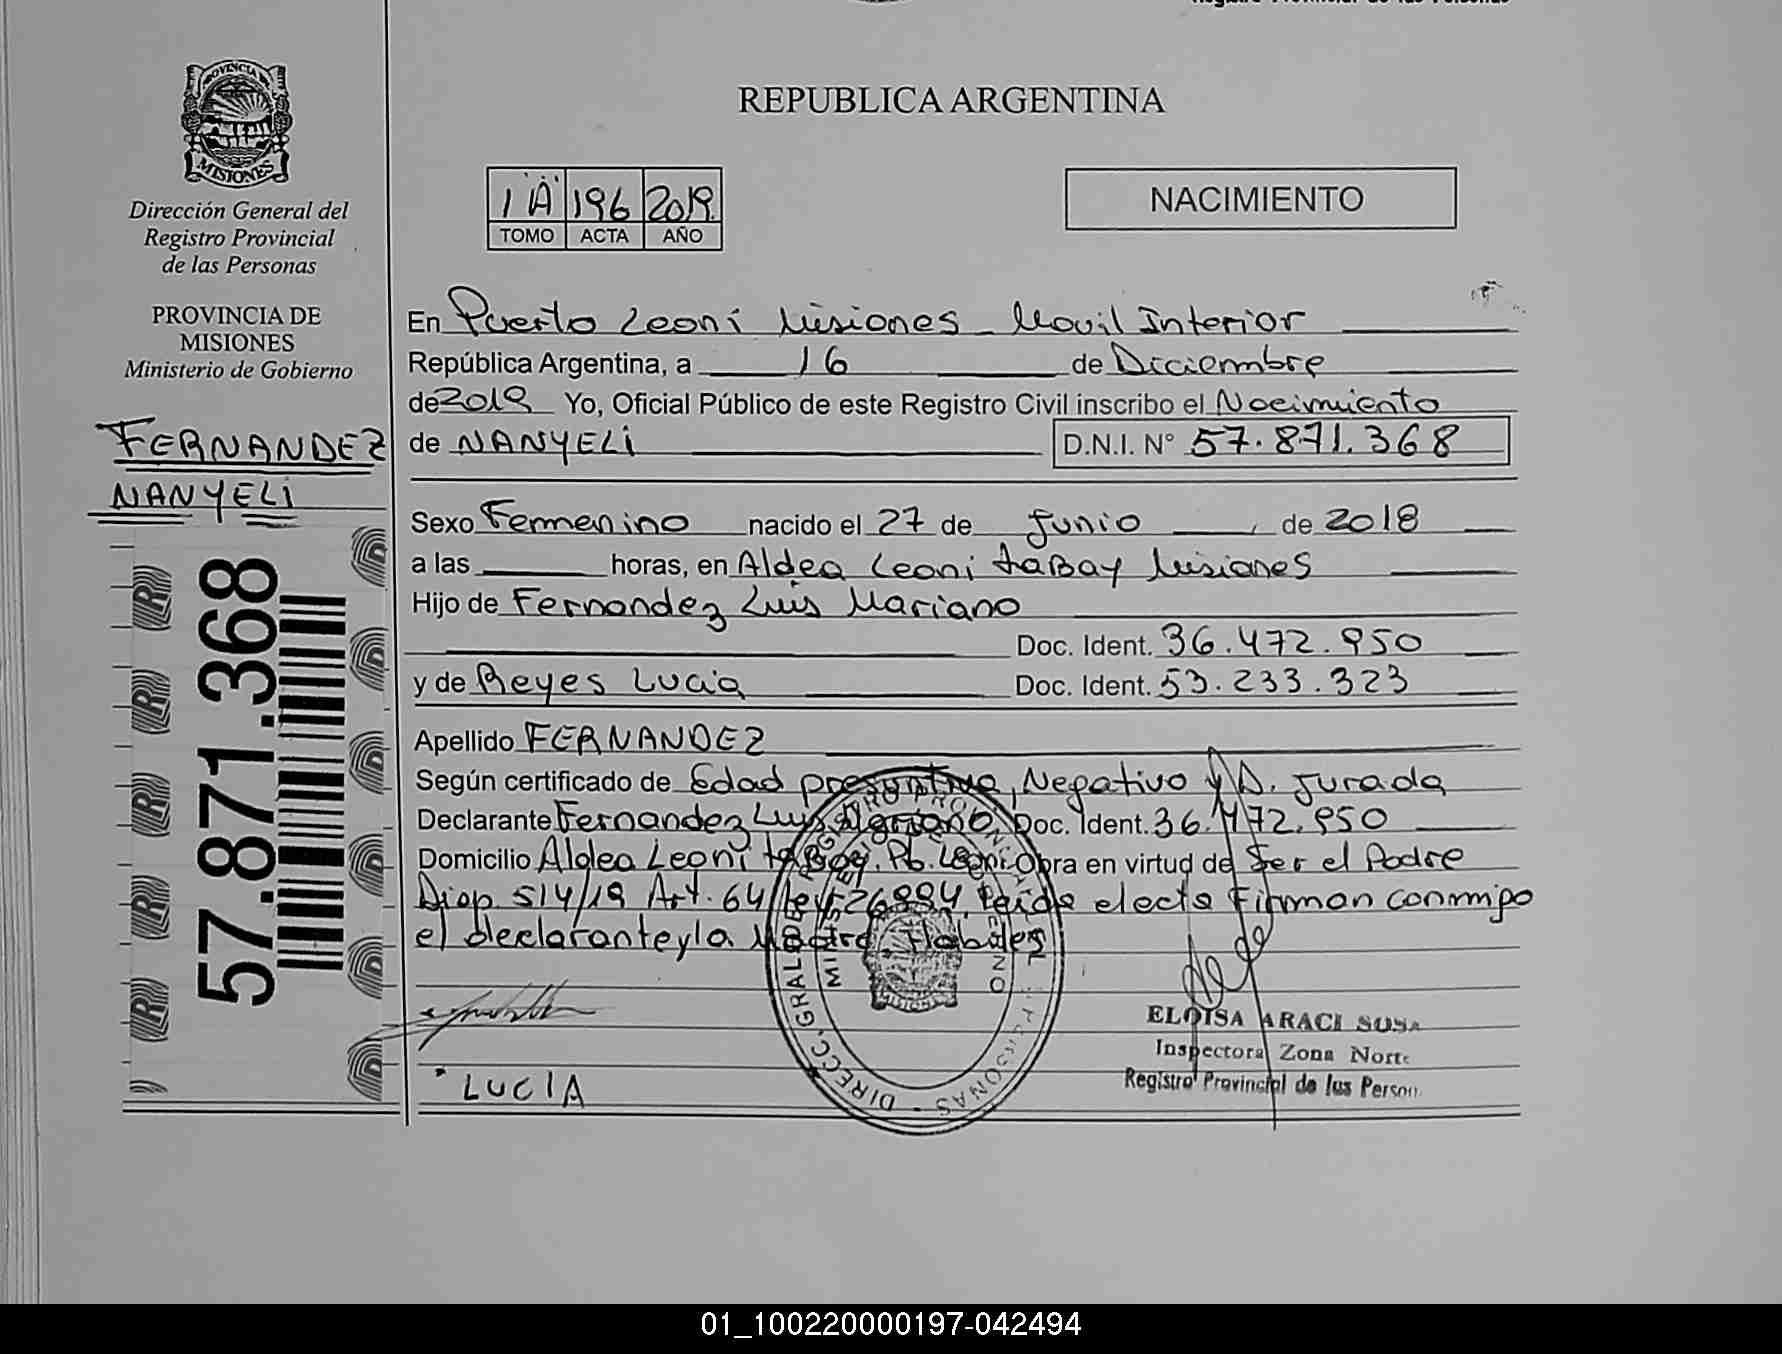 Registro Provincial de las Personas
PROVINCIA DE
MISIONES
REPUBLICA ARGENTINA
1 "A" 196 2019
TOMO ACTA AÑO
NACIMIENTO
Dirección General del
Registro Provincial
de las Personas
PROVINCIA DE
MISIONES
Ministerio de Gobierno
FERNANDEZ
NANYELI
57.871.368
En Puerto Leoni Misiones - Movil Interior
República Argentina, a 16 de Diciembre
de 2019 Yo, Oficial Público de este Registro Civil inscribo el Nacimiento
de NANYELI D.N.I. N° 57.871.368
Sexo Femenino nacido el 27 de Junio de 2018
a las horas, en Aldea Leoni taBay Misiones
Hijo de Fernandez Luis Mariano
Doc. Ident. 36.472.950
y de Reyes Lucia Doc. Ident. 53.233.323
Apellido FERNANDEZ
Según certificado de Edad presuntiva, Negativo y D. Jurada
Declarante Fernandez Luis Mariano Doc. Ident. 36.472.950
Domicilio Aldea Leoni taBay. Pto. Leoni Obra en virtud de Ser el Padre
Disp. 514/19 Art. 64 ley 26994. Leida el acta Firman conmigo
el declarante y la Madre
DIRECC. GRAL. DEL REGISTRO PROVINCIAL PERSONAS
MISIONES
ELOISA ARACI SOSA
Inspectora Zona Norte
Registro Provincial de las Person
LUCIA
01_100220000197-042494